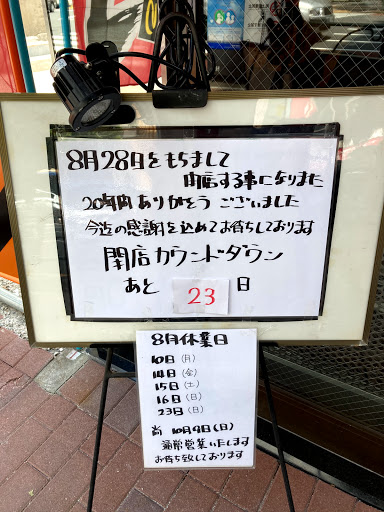 8月28日をもちまして
閉店する事になりました
20年間ありがとうございました
今迄の感謝を込めてお待ちしております
閉店カウントダウン
あと 23 日
8月休業日
10日(月)
14日(金)
15日(土)
16日(日)
23日(日)
尚 10月9日(日)
通常営業いたします
お待ち致しております